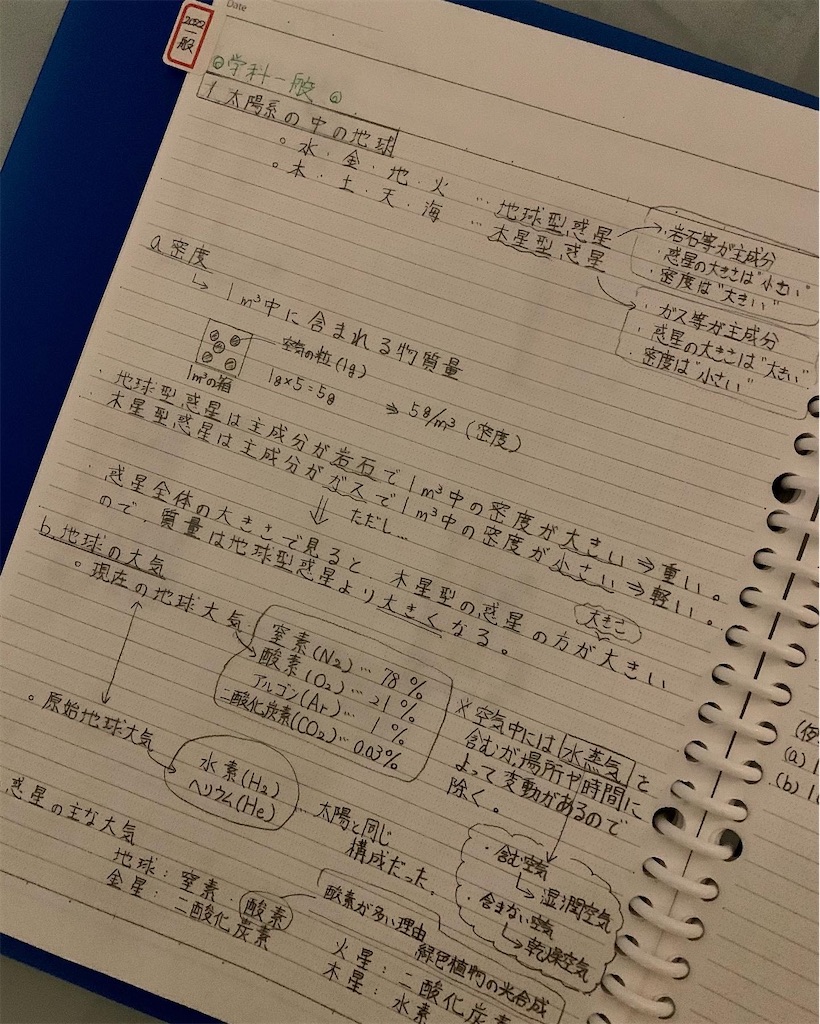 Date
2022
一般
◎学科一般◎
1.太陽系の中の地球
○水・金・地・火 … 地球型惑星
○木・土・天・海 … 木星型惑星
・岩石等が主成分
・惑星の大きさは"小さい"
・密度は"大きい"
・ガス等が主成分
・惑星の大きさは"大きい"
・密度は"小さい"
a.密度
↳1m³中に含まれる物質量
空気の粒(1g)
1g×5=5g
⇒5g/m³(密度)
1m³の箱
・地球型惑星は主成分が岩石で1m³中の密度が大きい⇒重い。
・木星型惑星は主成分がガスで1m³中の密度が小さい⇒軽い。
⇓ ただし…
・惑星全体の大きさで見ると、木星型の惑星の方が大きい
大きさ
ので、質量は地球型惑星より大きくなる。
b.地球の大気
○現在の地球大気
窒素(N₂)…78%
酸素(O₂)…21%
アルゴン(Ar)…1%
二酸化炭素(CO₂)…0.03%
※空気中には水蒸気を
含むが、場所や時間に
よって変動があるので
除く。
・含む空気
↳湿潤空気
・含まない空気
↳乾燥空気
○原始地球大気
水素(H₂)
ヘリウム(He)
…太陽と同じ
構成だった。
惑星の主な大気
地球:窒素・酸素
金星:二酸化炭素
酸素が多い理由
緑色植物の光合成
火星:二酸化炭素
木星:水素
(a)
(b)